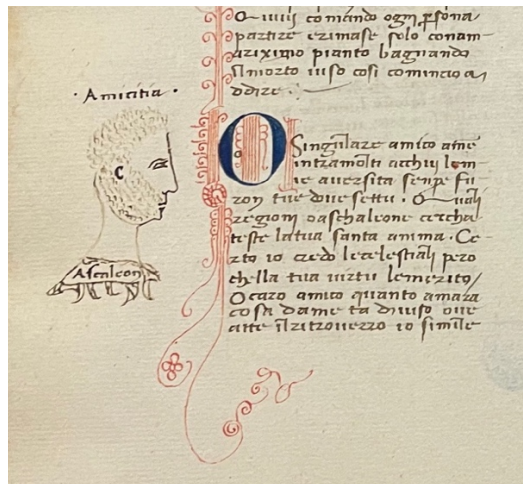 Quiui comando ogni psona
partire e rimase solo con am
ariximo pianto bagnando
il morto uiso cosi comincio a
dire
· Amicitia ·
O Singulare amico a me
intra molti acchui le m
ie auersita senpe fu
ron tue doue se tu · Quali
regioni o aschaleone cercha
teste la tua santa anima · Ce
rto io credo le celestiali pero
chella tua uirtu lemerito /
O caro amico quanto amara
cosa da me ta diuiso oue
atte il ritrouerro io simile
C
Ascaleon